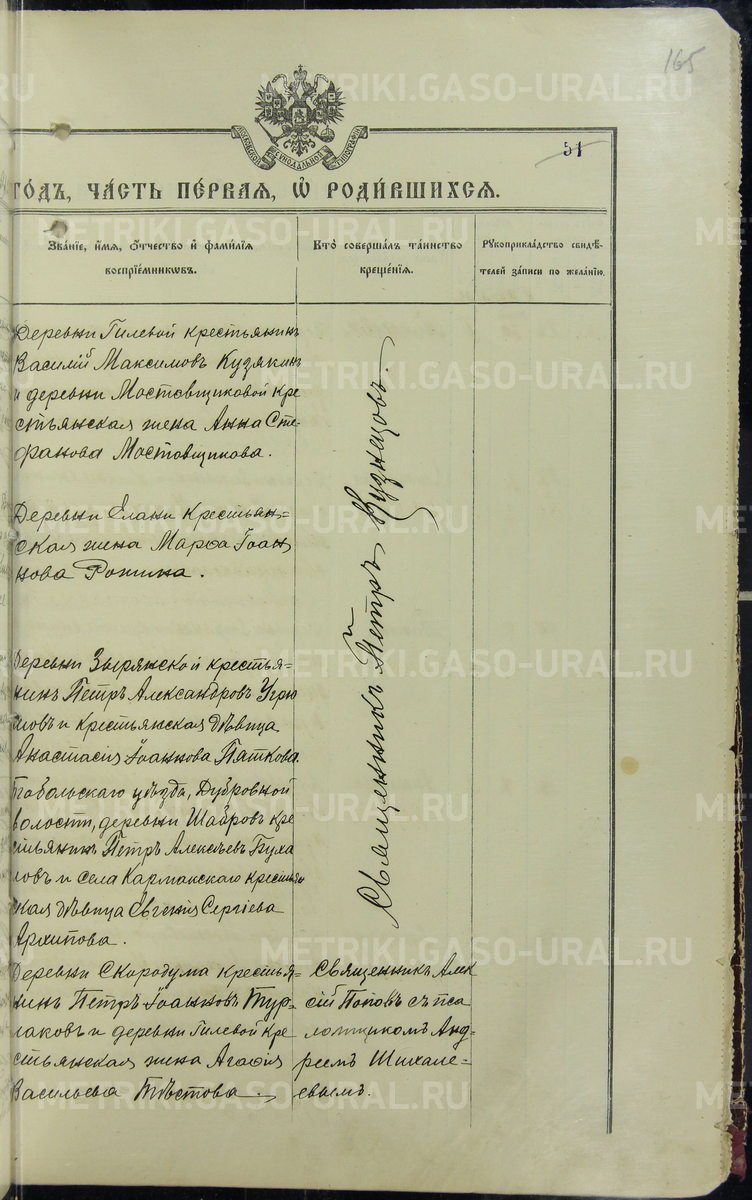 165
МОСКОВСКОЙ СѴНОДАЛЬНОЙ ТИПОГРАФІИ
51
ГО́ДЪ, ЧА́СТЬ ПЕ́РВАЯ, Ѡ҆ РОДИ́ВШИХСЯ.
Зва́нїе, и҆́мя, ѻ҆́тчество и҆ фами́лїя
воспрїе́мникѡвъ.
Кто̀ соверша́лъ та́инство
креще́нїя.
Рꙋкоприкла́дство свидѣ́-
телей за́писи по жела́нїю.
Деревни Гилевой крестьянинъ
Василій Максимовъ Кузякинъ
и деревни Мостовщиковой кре
стьянская жена Анна Сте-
фанова Мостовщикова.
Деревни Елани крестьян=
ская жена Марѳа Іоан
нова Ронжина.
Деревни Зырянской крестья=
нинъ Петръ Александровъ Угрю
мовъ и крестьянская дѣвица
Анастасія Іоаннова Пяткова.
Тобольскаго уѣзда, Дубровной
волости, деревни Шавровъ кре
стьянинъ Петръ Алексѣевъ
и села Кармакскаго крестьян
ская дѣвица Евгенія Сергіева
Архипова.
Священникъ Петръ Кузнецовъ.
Деревни Скородума крестья=
нинъ Петръ Іоанновъ Тур-
лаковъ и деревни Гилевой кре
стьянская жена Агафія
Васильева Тѣстова.
Священникъ Алек
сій Поповъ съ пса
ломщикомъ Анд-
реемъ Шихале=
евымъ.
METRIKI.GASO-URAL.RU